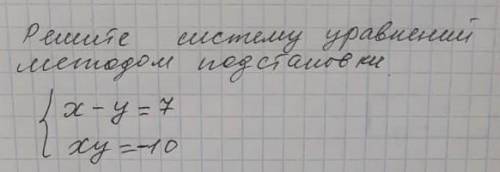 Решите систему уравнений
методом подстановки
{ x - y = 7
xy = -10